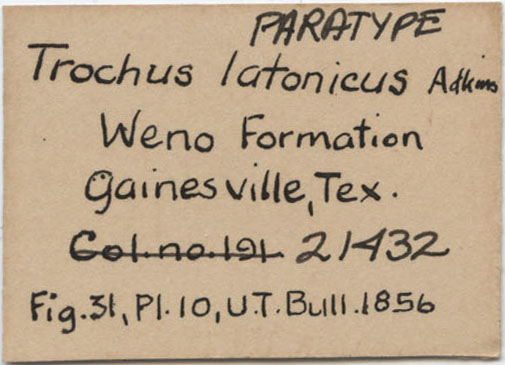 PARATYPE
Trochus latonicus Adkins
Weno Formation
Gainesville, Tex.
Col. no. 191 21432
Fig. 31, Pl. 10, U.T. Bull. 1856